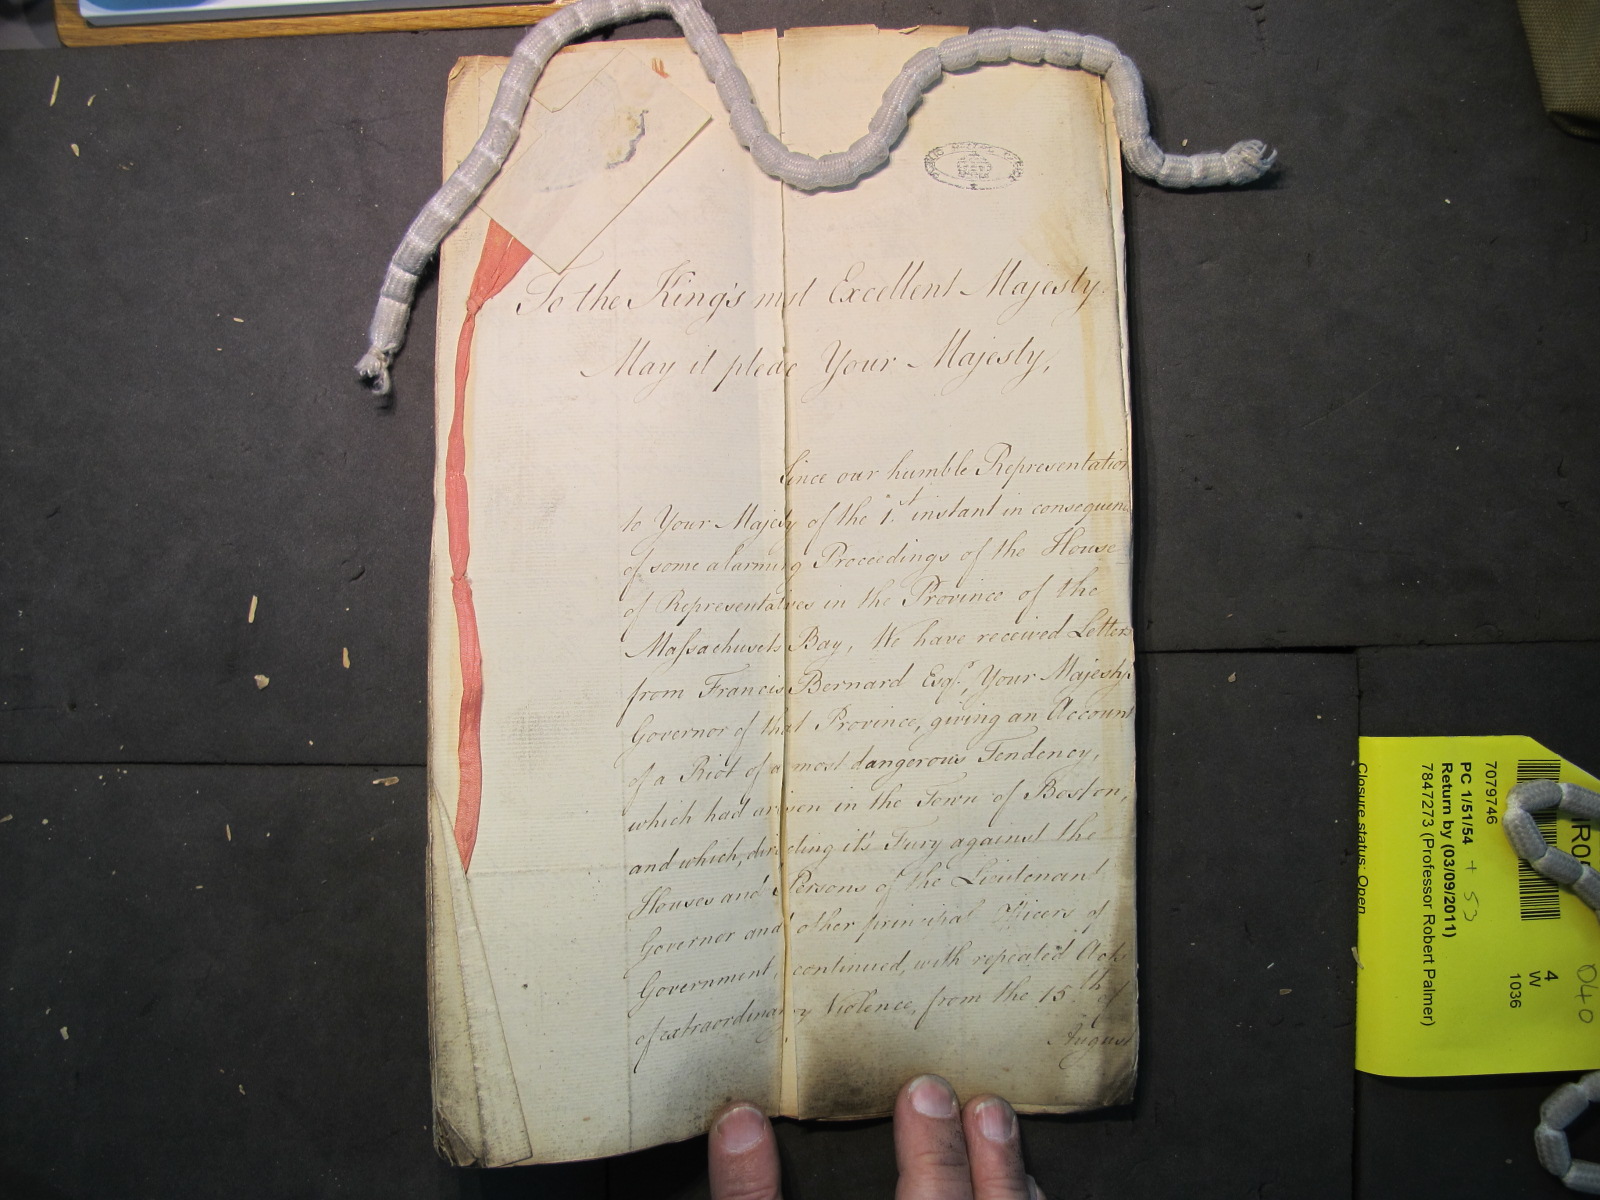 PUBLIC RECORD OFFICE
To the King's most Excellent Majesty.
May it please Your Majesty,
Since our humble Representation
to Your Majesty of the 1st. instant in consequen
of some alarming Proceedings of the House
of Representatives in the Province of the
Massachusets Bay, We have received Letters
from Francis Bernard Esqr., Your Majesty's
Governor of that Province, giving an Account
of a Riot of a most dangerous Tendency,
which had arisen in the Town of Boston,
and which, directing it's Fury against the
Houses and Persons of the Lieutenant
Governor and other principal Officers of
Government, continued, with repeated Acts
of extraordinary Violence, from the 15th of
August
7079746
PC 1/51/54 + 53
Return by (03/09/2011)
7847273 (Professor Robert Palmer)
Closure status: Open
4
W
1036
040